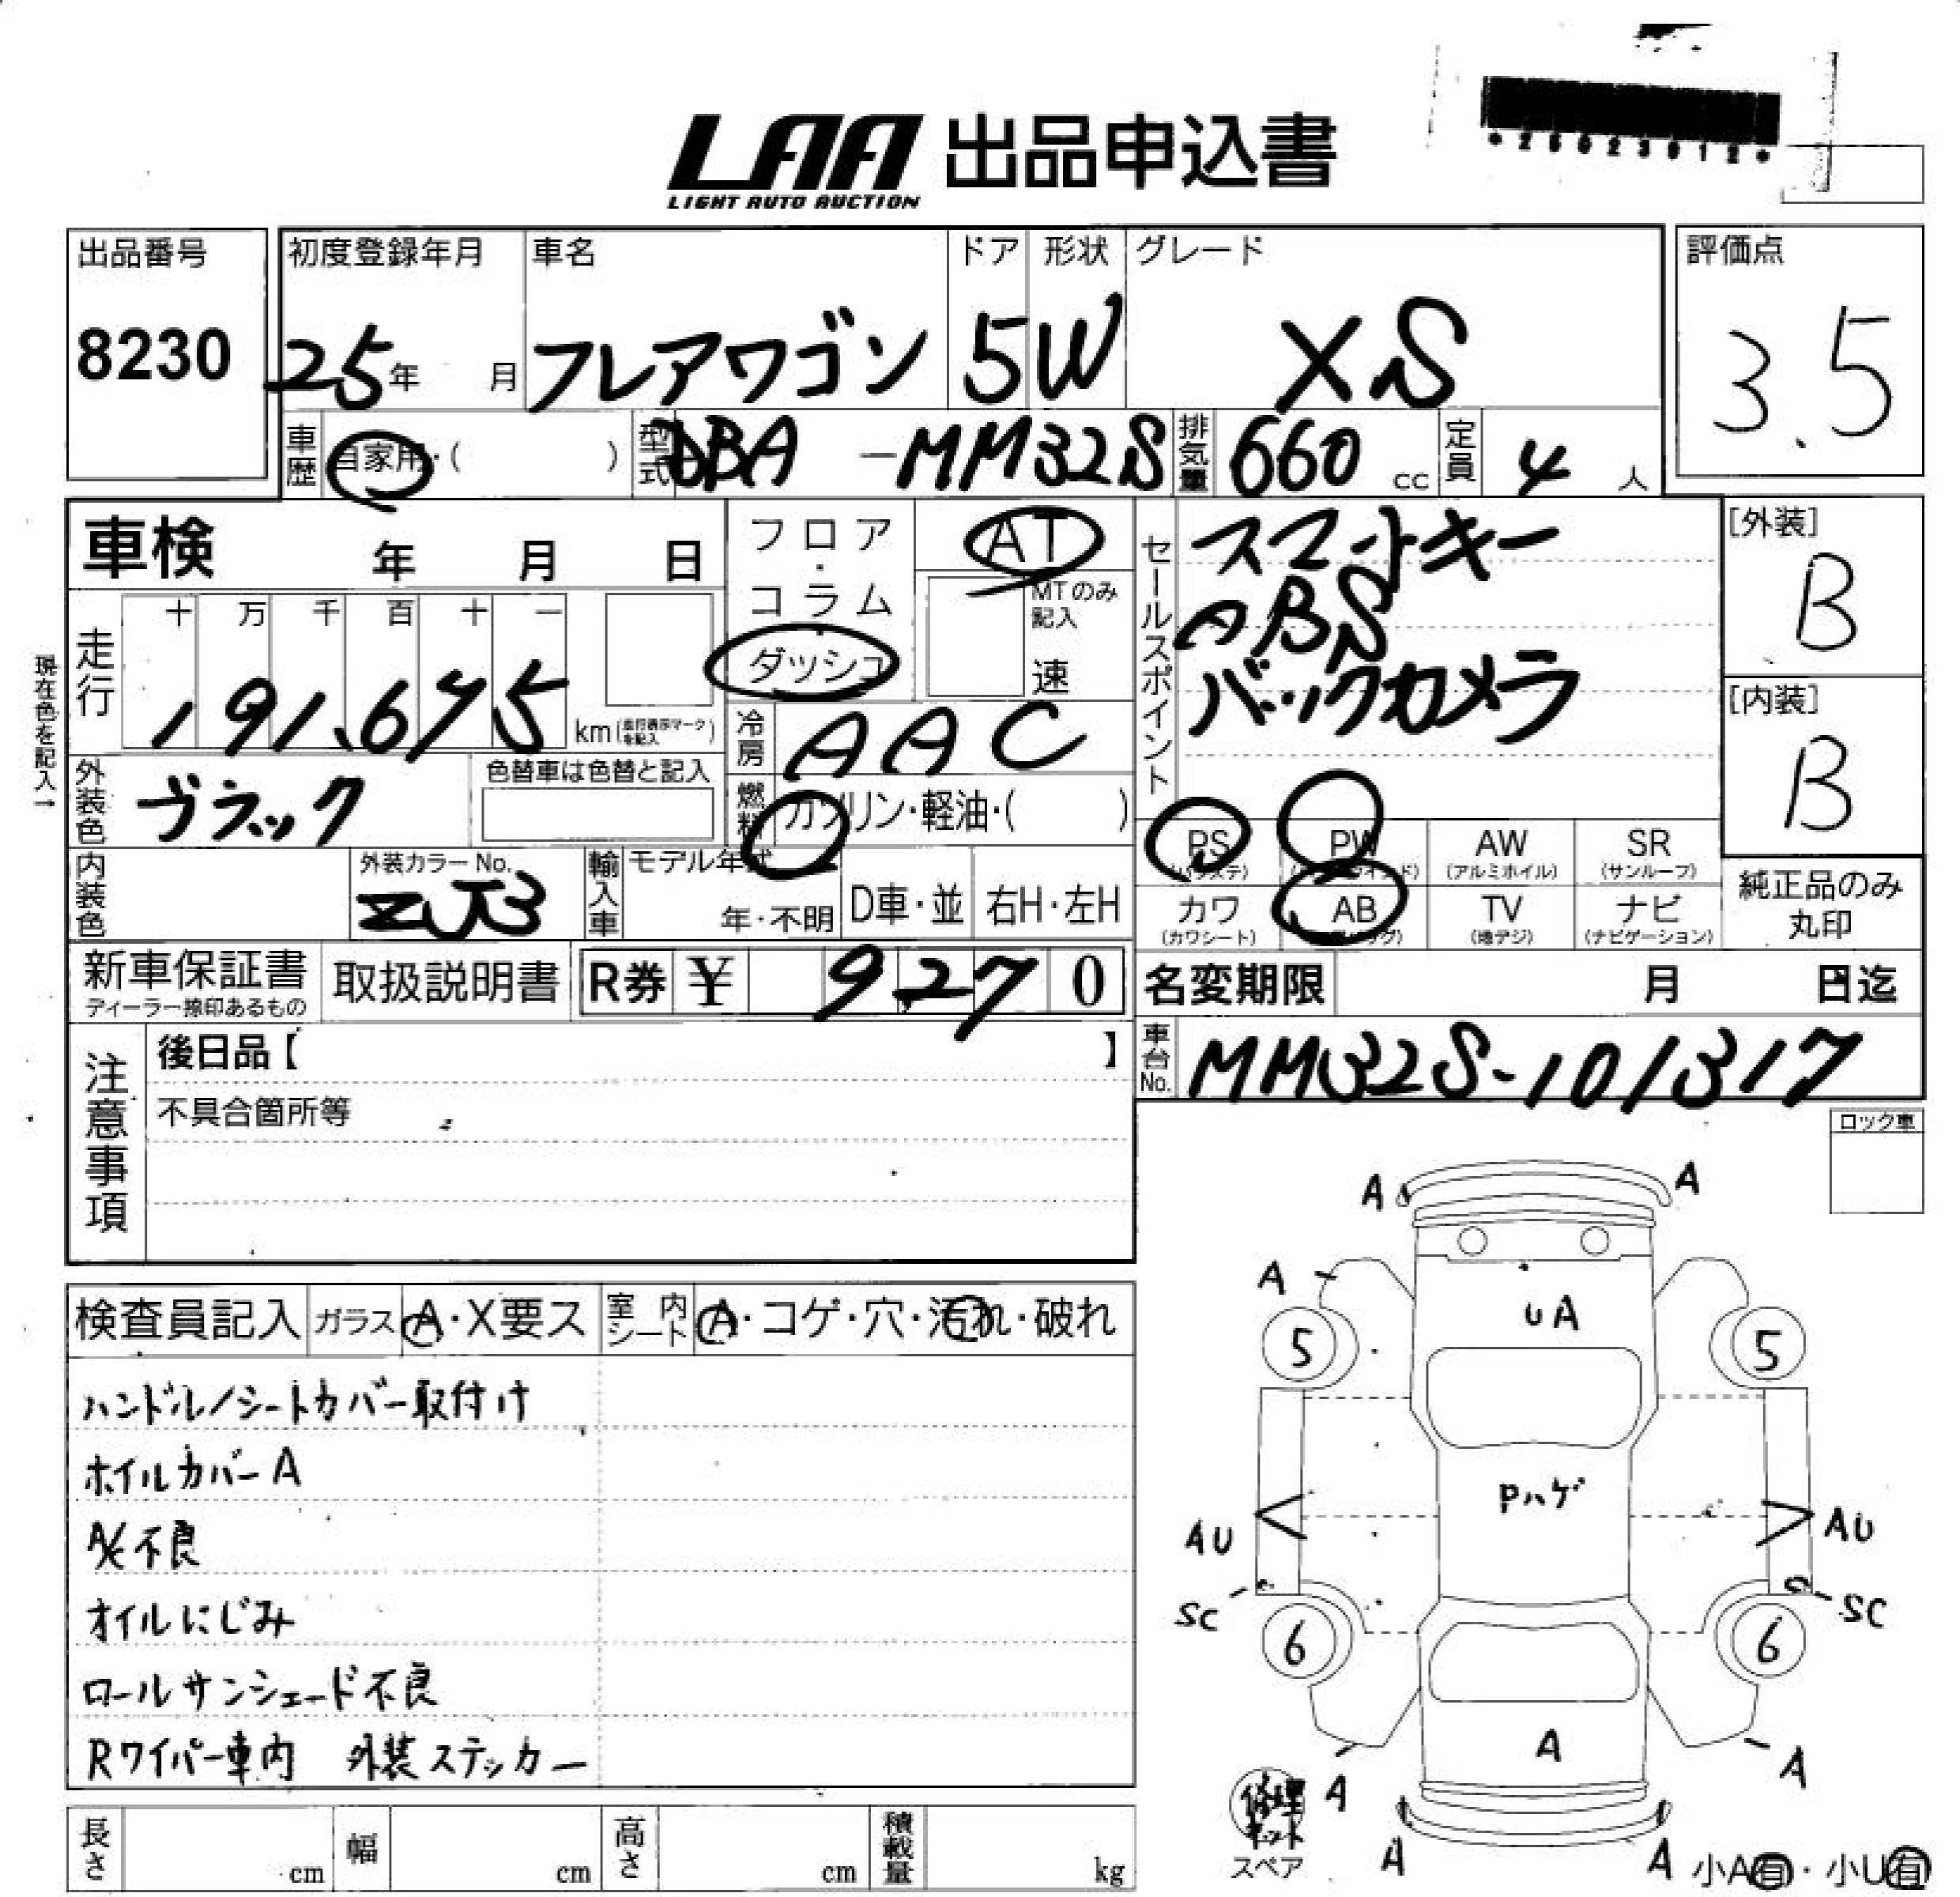 LAA 出品申込書
LIGHT AUTO AUCTION
出品番号
8230
初度登録年月
25年 月
車名
フレアワゴン
ドア
5
形状
W
グレード
XS
評価点
3.5
車歴 自家用・( )
型式 DBA -MM32S
排気量 660 cc
定員 4 人
車検 年 月 日
フロア・コラム・ダッシュ
AT
MTのみ記入
速
セールスポイント
スマートキー
ABS
バックカメラ
[外装]
B
[内装]
B
現在色を記入→
走行
十 万 千 百 十 一
191,675
km(走行表示マークを記入)
冷房 AAC
外装色 ブラック
色替車は色替と記入
燃料 ガソリン・軽油・( )
PS
(パワステ)
PW
AW
(アルミホイル)
SR
(サンルーフ)
内装色
外装カラーNo.
ZJ3
輸入車
モデル年式
年・不明
D車・並
右H・左H
カワ
(カワシート)
AB
TV
(地デジ)
ナビ
(ナビゲーション)
純正品のみ
丸印
新車保証書
ディーラー捺印あるもの
取扱説明書
R券 ¥ 9,270
名変期限 月 日迄
車台No. MM32S-101317
注意事項
後日品【 】
不具合箇所等
ロック車
検査員記入
ガラス A・X要ス
室内シート A・コゲ・穴・汚れ・破れ
ハンドル/シートカバー取付け
ホイルカバーA
A/C不良
オイルにじみ
ロールサンシェード不良
Rワイパー車内 外装ステッカー
A A
A
UA
5 5
Pハゲ
AU AU
SC SC
6 6
A
A A
A A
修理キット
スペア
小A有・小U有
長さ cm
幅 cm
高さ cm
積載量 kg